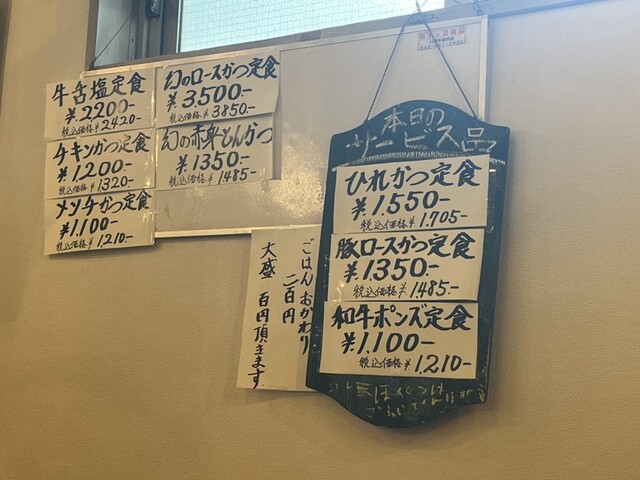 牛舌塩定食
¥2200-
税込価格¥2420-
チキンかつ定食
¥1.200-
税込価格¥1320-
メンチかつ定食
¥1.100-
税込価格¥1.210-
幻のロースかつ定食
¥3,500-
税込価格¥3850-
幻の赤身とんかつ
¥1350-
税込価格¥1485-
ごはんおかわり
二百円
大盛 百円頂きます
本日の
サービス品
ひれかつ定食
¥1.550-
税込価格¥1.705-
豚ロースかつ定食
¥1350-
税込価格¥1.485-
和牛ポンズ定食
¥1,100-
税込価格¥1,210-